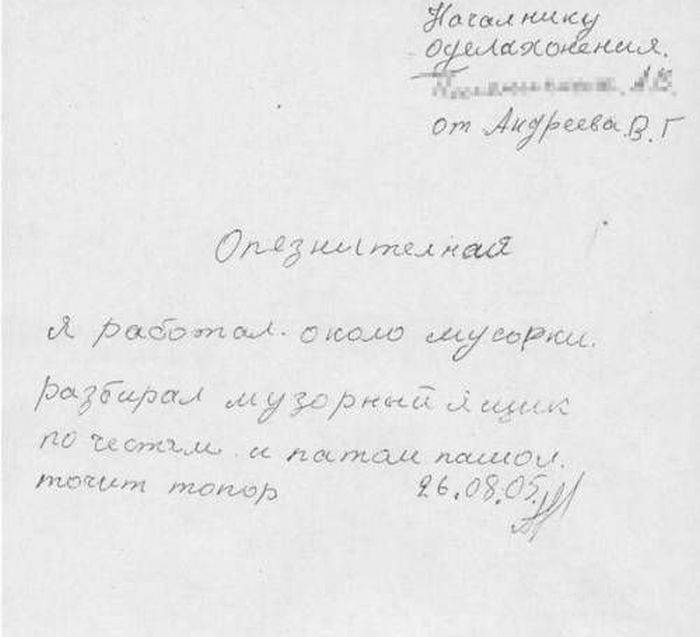 Началнику
оделахонения.
от Андреева В. Г
Опезнителная
я работал. около мусорки.
разбирал музорный ящик
по честям и патам пашол.
точит топор 26.08.05.